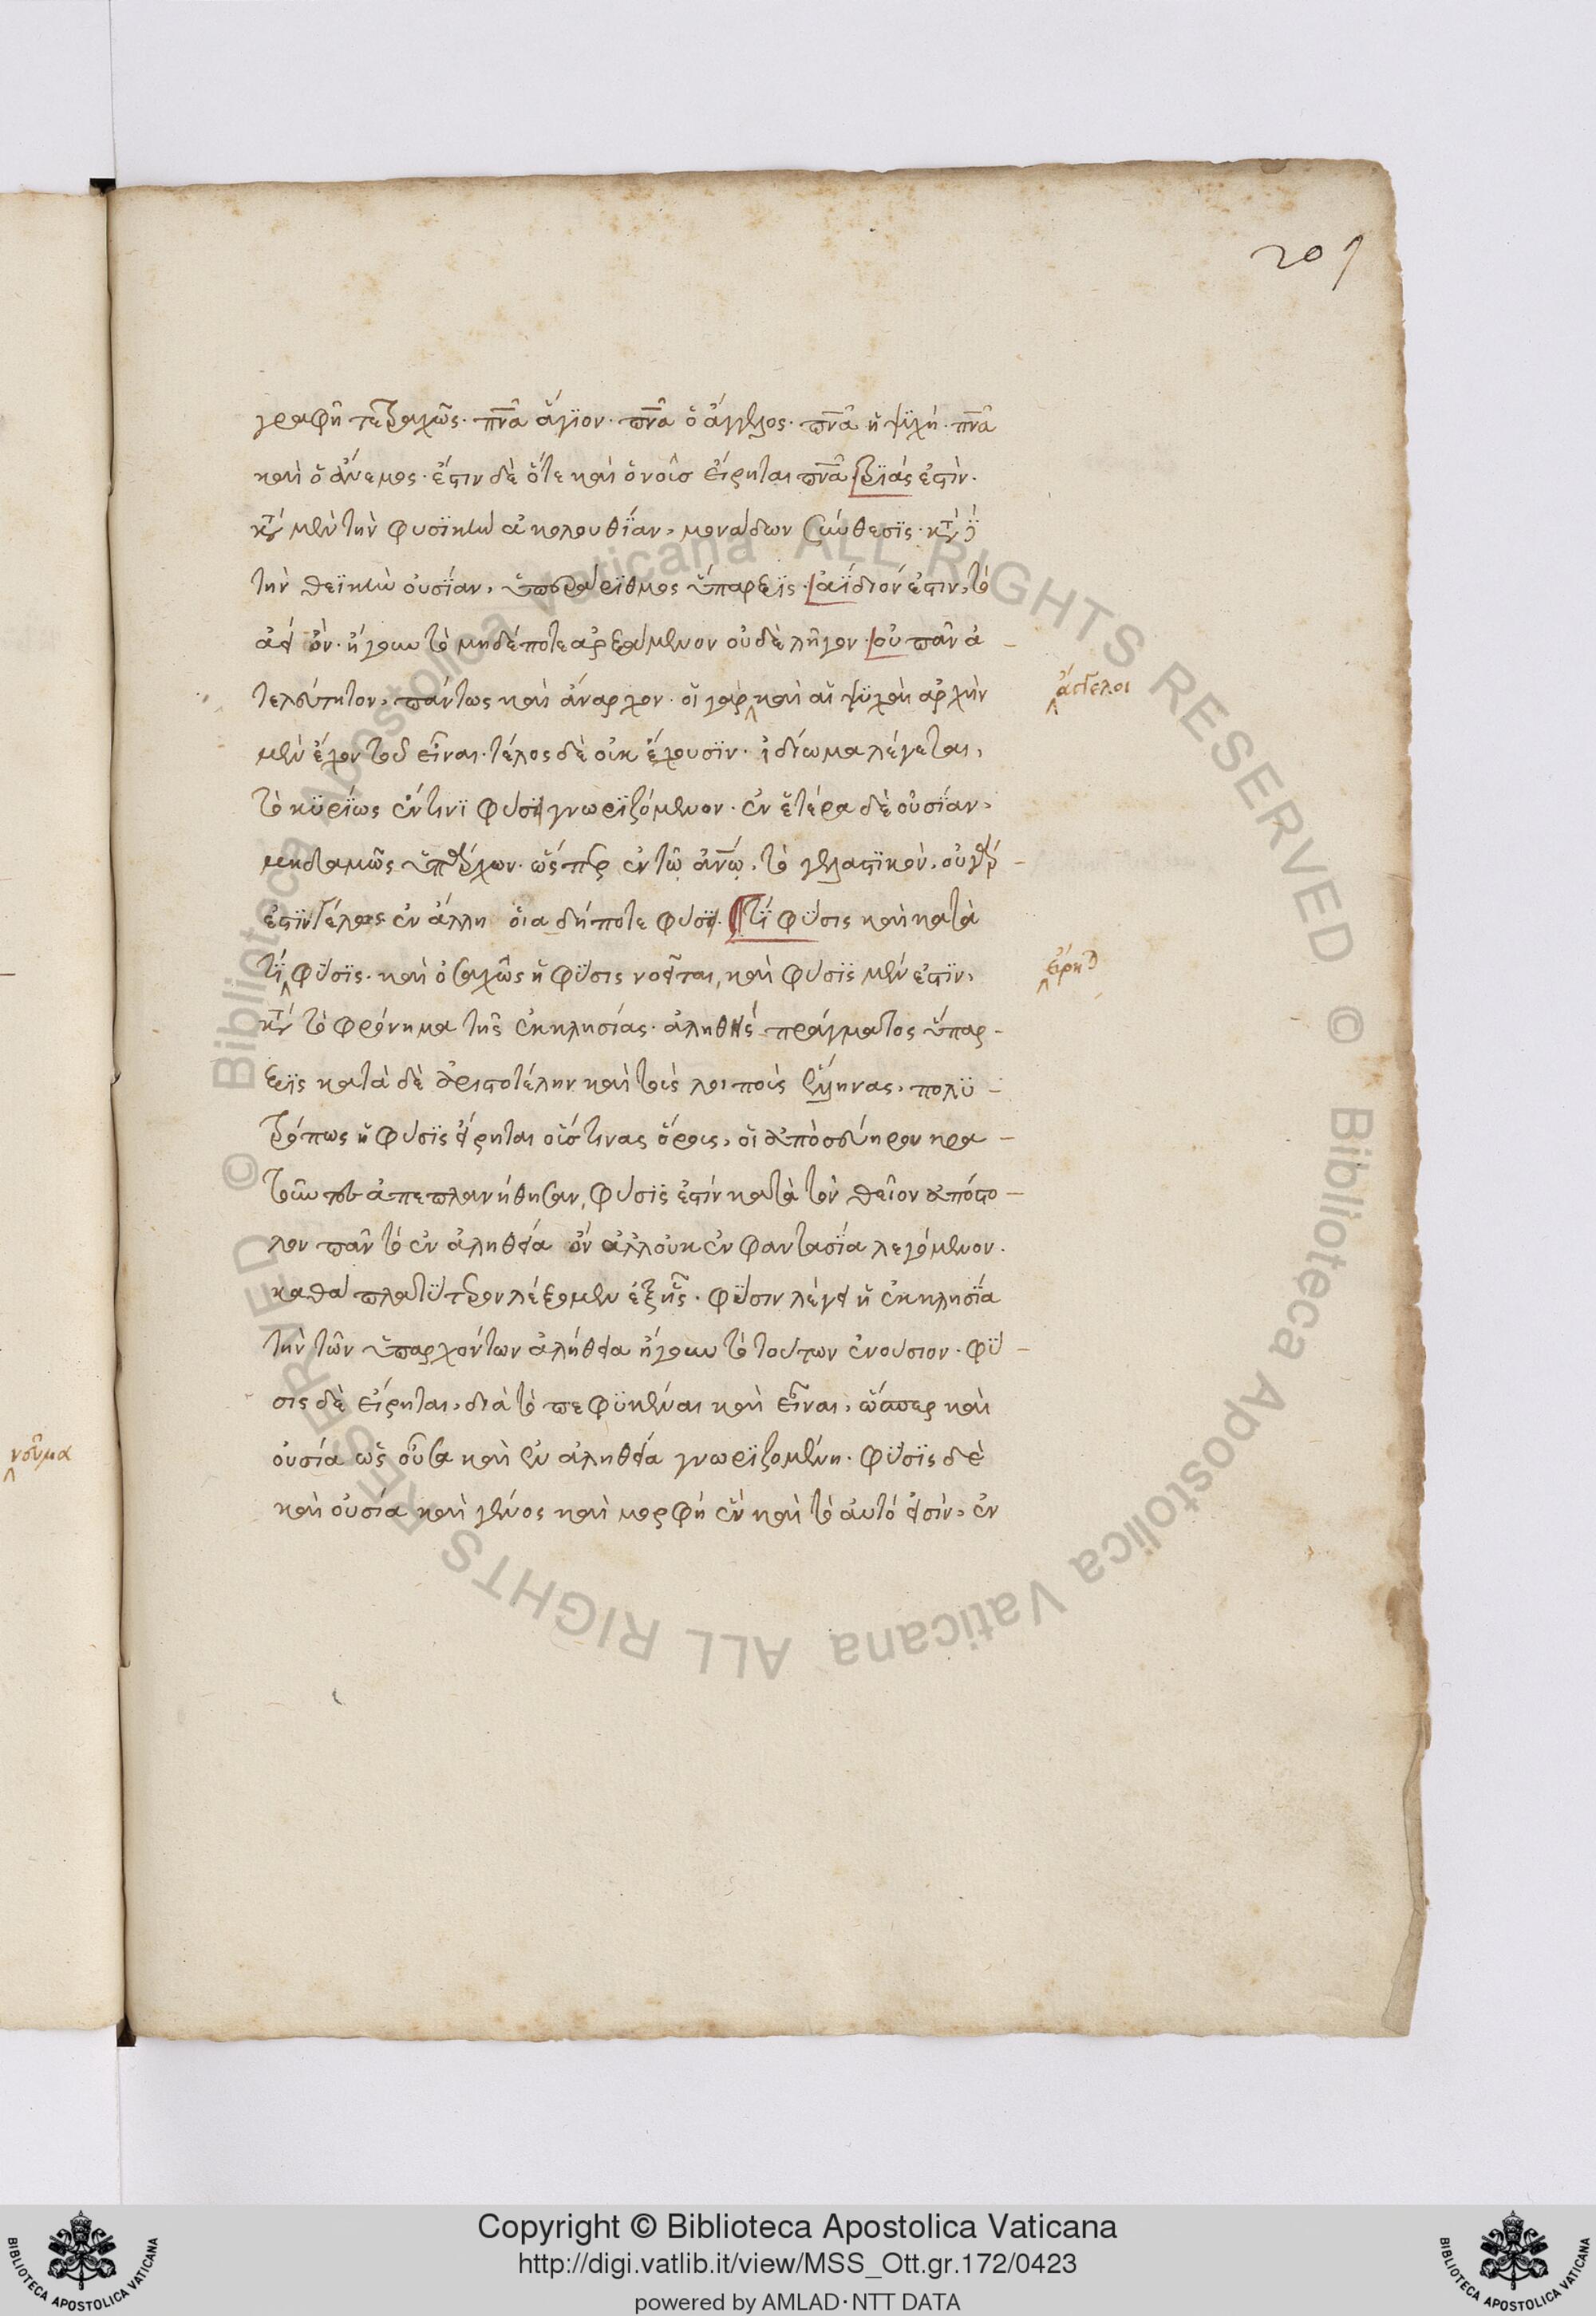 201
γραφῆ τετραχῶς· πν̅α ἅγϊον· πν̅α ὁ ἄγγελος· πν̅α ἡ ψυχή· πν̅α
καὶ ὁ ἄνεμος· ἔστιν δὲ ὅτε καὶ ὁ νοῦσ εἴρηται πν̅α τρϊάς ἐστὶν·
κατὰ μὲν τὴν φυσϊκὴν ἀκολουθΐαν, μονάδων σύνθεσϊς· κατὰ δὲ
τὴν θεϊκὴν οὐσΐαν, ὑπὲρ ἀρϊθμος ὕπαρξϊς· ἀΐδιόν ἐστιν, τὸ
ἀεὶ ὄν· ἤγουν τὸ μηδέποτε ἀρξάμενον οὐδὲ λῆγον· οὐ πᾶν ἀ-
τελεύτητον, πάντως καὶ ἄναρχον· οἵ γὰρ καὶ αἵ ψϋχαὶ ἀρχὴν
ἄγγελοι
μὲν ἔχον τοῦ εἶναι· τέλος δὲ οὐκ ἔχουσϊν· ἰδίωμα λέγεται,
τὸ κϋρϊως ἔν τινϊ φύσει γνωρϊζόμενον· ἐν ἑτέρα δὲ οὐσΐαν,
μηδαμῶς ὑπάρχων· ὥσπερ ἐν τῷ ἀν̅ῳ, τὸ γελαστϊκὸν, οὐ γάρ
ἐστϊν γέλως ἐν ἄλλη οἵα δήποτε φύσει· Τί φϋσις καὶ κατὰ
τί φϋσϊς· καὶ ὁσαχῶς ἡ φϋσις νοεῖται, καὶ φύσϊς μέν ἐστϊν,
εἴρηται
κατὰ τὸ φρόνημα τῆς ἐκκλησίας· ἀληθὴς πράγματος ὕπαρ-
ξϊς κατὰ δὲ ἀριστοτέλην καὶ τοὺς λοιποὺς ἕλληνας, πολϋ-
τρόπως ἡ φύσϊς εἴρηται οἷστινας ὅροις, οἱ ἀπὸ σευήρου κρα-
τοῦντες ἀπεπλανήθησαν, φύσϊς ἐστίν κατὰ τὸν θεῖον ἀπόστο-
λον πᾶν τὸ ἐν ἀληθεία ὂν ἀλλ οὐκ ἐν φαντασΐα λεγόμενον·
καθὰ πλατύτερον λέξομεν ἑξῆς· φϋσιν λέγει ἡ ἐκκλησΐα
τὴν τῶν ὑπαρχόντων ἀλήθεια ἤγουν τὸ τούτων ἐνούσιον· φΰ-
σις δὲ εἴρηται, διὰ τὸ πεφϋκέναι καὶ εἶναι, ὥσπερ καὶ
οὐσία ὡς οὖσα καὶ ἐν ἀληθεία γνωρϊζομένη· φϋσϊς δὲ
καὶ οὐσία καὶ γένος καὶ μορφή ἓν καὶ τὸ αὐτό εἰσὶν, ἐν
νοῦμα
Copyright © Biblioteca Apostolica Vaticana
http://digi.vatlib.it/view/MSS_Ott.gr.172/0423
powered by AMLAD·NTT DATA
BIBLIOTECA APOSTOLICA VATICANA
BIBLIOTECA APOSTOLICA VATICANA
© Biblioteca Apostolica Vaticana ALL RIGHTS RESERVED
© Biblioteca Apostolica Vaticana ALL RIGHTS RESERVED